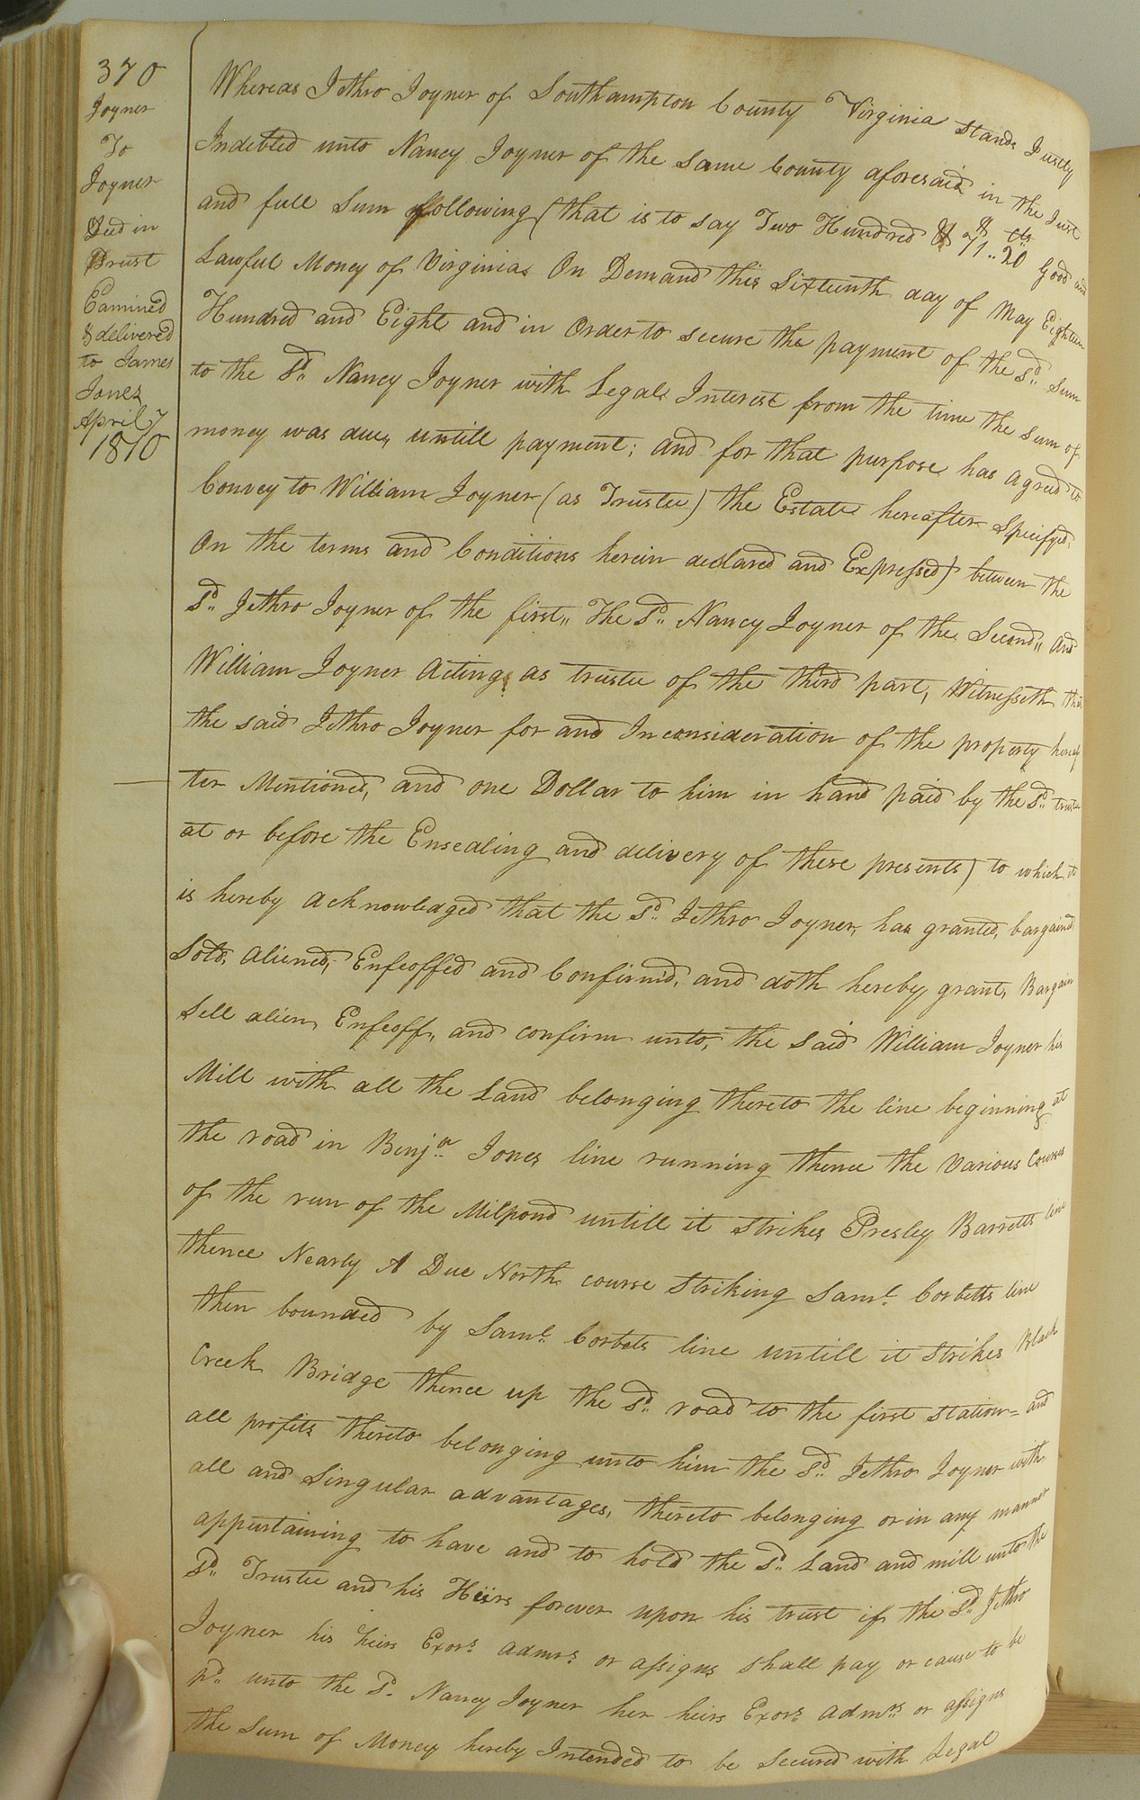 370
Joyner
To
Joyner
Deed in
Trust
Examined
& delivered
to James
Jones
April 7
1810
Whereas Jethro Joyner of Southampton County Virginia stands Justly
Indebted unto Nancy Joyner of the same County aforesaid in the Just
and full Sum following (that is to say Two Hundred & 71 $ .. 20 cts Good and
Lawful Money of Virginia On Demand this Sixteenth day of May Eighteen
Hundred and Eight and in Order to secure the payment of the Sd. Sum
to the Sd. Nancy Joyner with Legal Interest from the time the sum of
money was due, untill payment; and for that purpose has agreed to
Convey to William Joyner (as Trustee) the Estate hereafter Specifyed.
On the terms and Conditions herein declared and Expressed) between the
Sd. Jethro Joyner of the first,, The Sd. Nancy Joyner of the Second,, and
William Joyner Acting as trustee of the third part, Witnesseth that
the said Jethro Joyner for and In consideration of the property hereaf
ter Mentioned, and one Dollar to him in hand paid by the Sd. trustee
at or before the Ensealing and delivery of these presents) to which it
is hereby acknowledged that the Sd. Jethro Joyner, has granted, bargained
Sold, aliened, Enfeoffed and Confirmd, and doth hereby grant, Bargain
Sell alien, Enfeoff, and confirm unto, the said William Joyner his
Mill with all the Land belonging thereto the line beginning at
the road in Benja. Jones line running thence the Various Courses
of the run of the Milpond untill it strikes Presley Barretts line
thence Nearly A Due North course striking Saml. Corbetts line
then bounded by Saml. Corbets line untill it strikes Black
Creek Bridge thence up the Sd. road to the first station = and
all profits thereto belonging unto him the Sd. Jethro Joyner with
all and Singular advantages, thereto belonging or in any manner
appertaining to have and to hold the Sd. Land and mill unto the
Sd. Trustee and his Heirs forever upon his trust if the Sd. Jethro
Joyner his heirs Exors. admrs. or assigns shall pay or cause to be
pd. unto the Sd. Nancy Joyner her heirs Exors. admrs. or assigns
the Sum of Money hereby Intended to be Secured with Legal